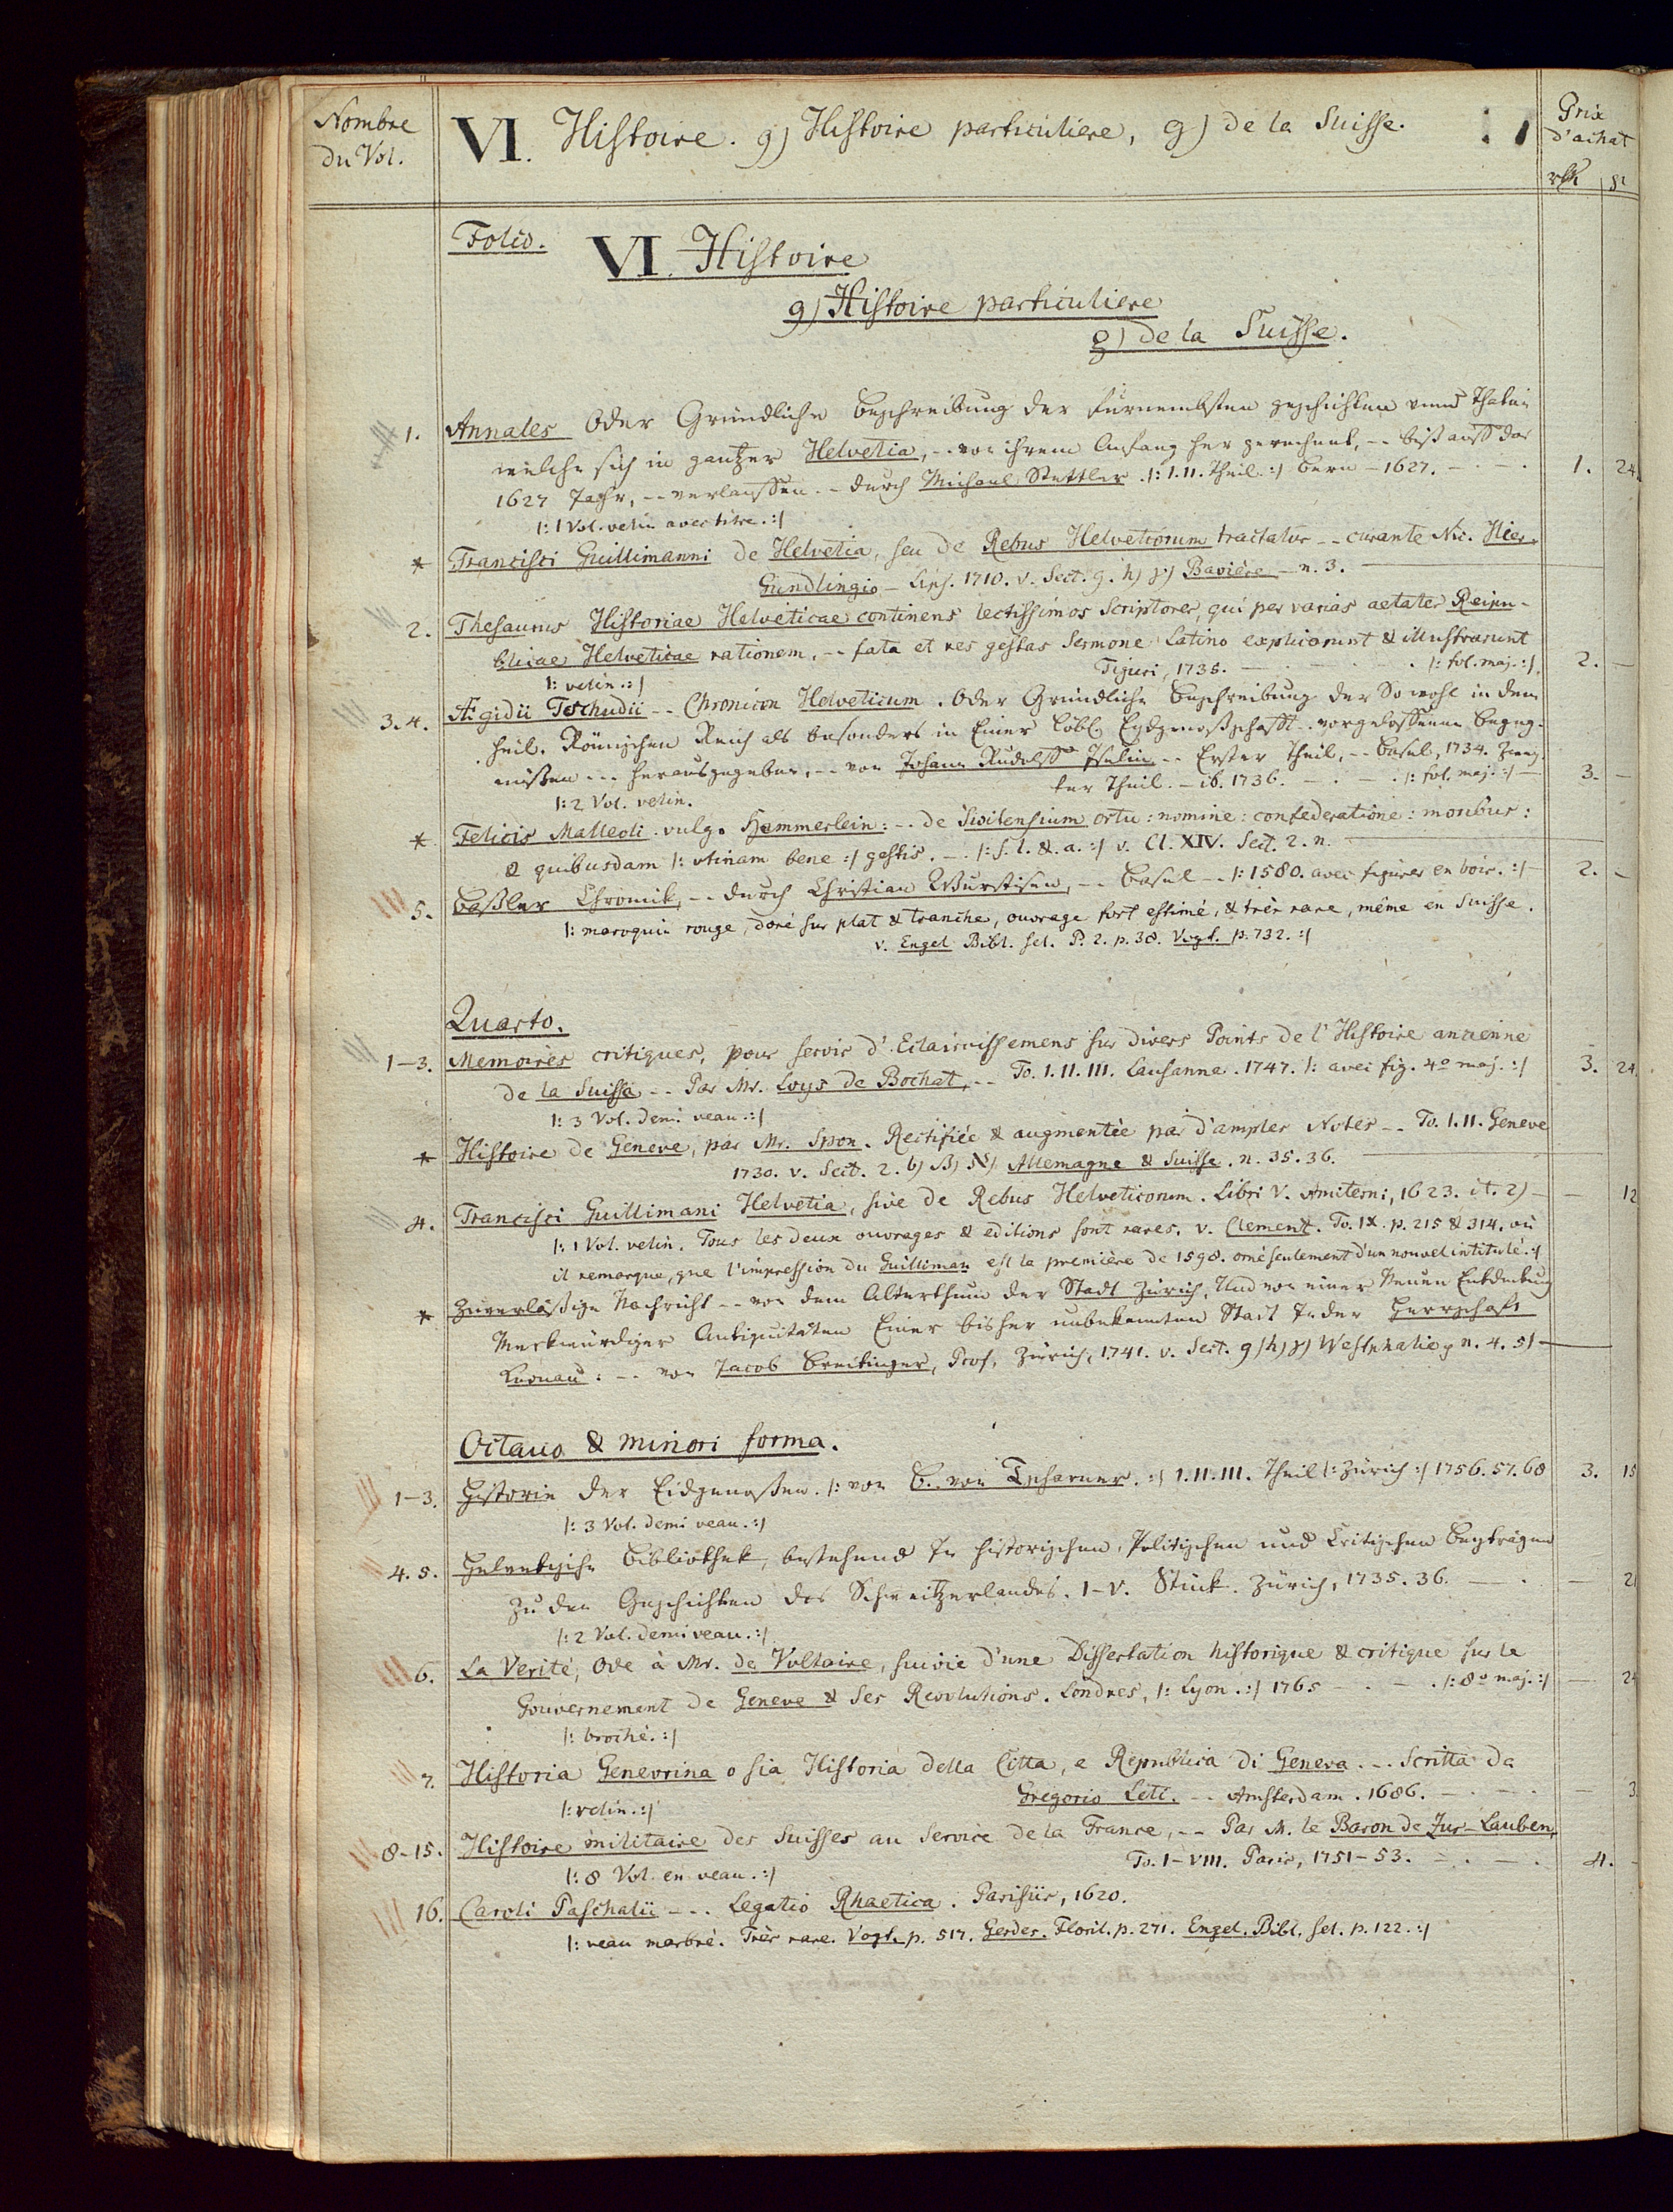 Nombre
du Vol.
VI. Histoire. 9) Histoire particuliere, g) de la Suisse.
Prix
d'achat
rth gr
Folio.
VI. Histoire
9) Histoire particuliere
g) de la Suisse.
1. Annales Oder Gründliche Beschreibung der fürnembsten geschichten unnd Thaten
welche sich in gantzer Helvetia, -- von ihrem Anfang her gerechnet, -- biß auff das
1627 Jahr, -- verlauffen -- durch Michael Stettler. |: I. II. Theil :| Bern - 1627. 1. 24
|: 1 Vol. velin avec titre. :|
* Francisci Guillimanni de Helvetia, seu de Rebus Helvetiorum tractatus -- curante Nic. Hier.
Gundlingio - Lips. 1710. v. Sect. 9. h) γ) Baviere - n. 3.
2. Thesaurus Historiae Helveticae continens lectissimos Scriptores, qui per varias aetates Reipu-
blicae Helveticae rationem, -- fata et res gestas Sermone Latino explicarunt & illustrarunt
Tiguri, 1735. |: fol. maj. :| 2. —
|: velin. :|
3. 4. Ægidii Tschudii -- Chronicon Helveticum. Oder Gründliche Beschreibung der So wohl in dem
heil. Römischen Reich als besonders in Einer Lobl. Eydgnoßschafft -- vorgeloffenen Begeg-
nußen --- herausgegeben, -- von Johann Rudolff Iselin -- Erster Theil, -- Basel, 1734. Zwey-
ter Theil. - ib. 1736. |: fol. maj. :| 3. —
|: 2 Vol. velin.
* Felicis Malleoli vulgo Hemmerlein: -- de Switensium ortu: nomine: confederatione: moribus:
& quibusdam |: utinam bene :| gestis. -- |: s. l. & a. :| v. Cl. XIV. Sect. 2. n.
5. Baßler Chronik, -- durch Christian Wurstisen, -- Basel -- |: 1580. avec figures en bois. :| 2. —
|: maroquin rouge, doré sur plat & tranche, ouvrage fort estimé, & très rare, même en Suisse.
v. Engel Bibl. sel. P. 2. p. 38. Vogt. p. 732. :|
Quarto.
1-3. Memoires critiques, pour servir d'Eclaircissemens sur divers Points de l'Histoire ancienne
de la Suisse -- Par Mr. Loys de Bochat, -- To. I. II. III. Lausanne. 1747. |: avec fig. 4o maj. :| 3. 24
|: 3 Vol. demi veau. :|
* Histoire de Geneve, par Mr. Spon. Rectifiée & augmentée par d'amples Notes -- To. I. II. Geneve
1730. v. Sect. 2. b) β) א) Allemagne & Suisse. n. 35. 36.
4. Francisci Guillimani Helvetia, sive de Rebus Helveticorum. Libri V. Amiterni, 1623. it. 2) — 12
|: 1 Vol. velin. Tous les deux ouvrages & editions sont rares. v. Clement. To. IX. p. 215 & 314. où
il remarque, que l'impression du Guilliman est la première de 1598. orné seulement d'un nouvel intitulé. :|
* Zuverläßige Nachricht -- von dem Alterthum der Stadt Zürich, Und von einer Neuen Entdeckung
Merkwürdiger Antiquitäten Einer bisher unbekannten Stadt In der Herrschaft
Knonau: -- von Jacob Breitinger, Prof. Zürich, 1741. v. Sect. 9) h) γ) Westphalie n. 4. 5)
Octavo & minori forma.
1-3. Historie der Eidgenoßen. |: von B. von Tscharner. :| I. II. III. Theil |: Zürich :| 1756. 57. 68 3. 15
|: 3 Vol. demi veau. :|
4. 5. Helvetische Bibliothek, bestehend In historischen, Politischen und Critischen Beyträgen
Zu den Geschichten des Schweitzerlandes. I-V. Stück. Zürich, 1735. 36. — 21
|: 2 Vol. demi veau. :|
6. La Verité, Ode à Mr. de Voltaire, suivie d'une Dissertation historique & critique sur le
Gouvernement de Geneve & Ses Revolutions. Londres, |: Lyon. :| 1765 |: 8o maj. :| — 24
|: broché. :|
7. Historia Genevrina o sia Historia della Citta, e Republica di Geneva --- Scritta da
Gregorio Leti. -- Amsterdam. 1686. — 3
|: velin. :|
8-15. Histoire militaire des Suisses au Service de la France, -- Par M. le Baron de Zur-Lauben,
To. I-VIII. Paris, 1751-53. 4. -
|: 8 Vol. en veau. :|
16. Caroli Paschalii --- Legatio Rhaetica. Parisiis, 1620.
|: veau marbré. Très rare. Vogt. p. 517. Gerdes. Floril. p. 271. Engel. Bibl. sel. p. 122. :|